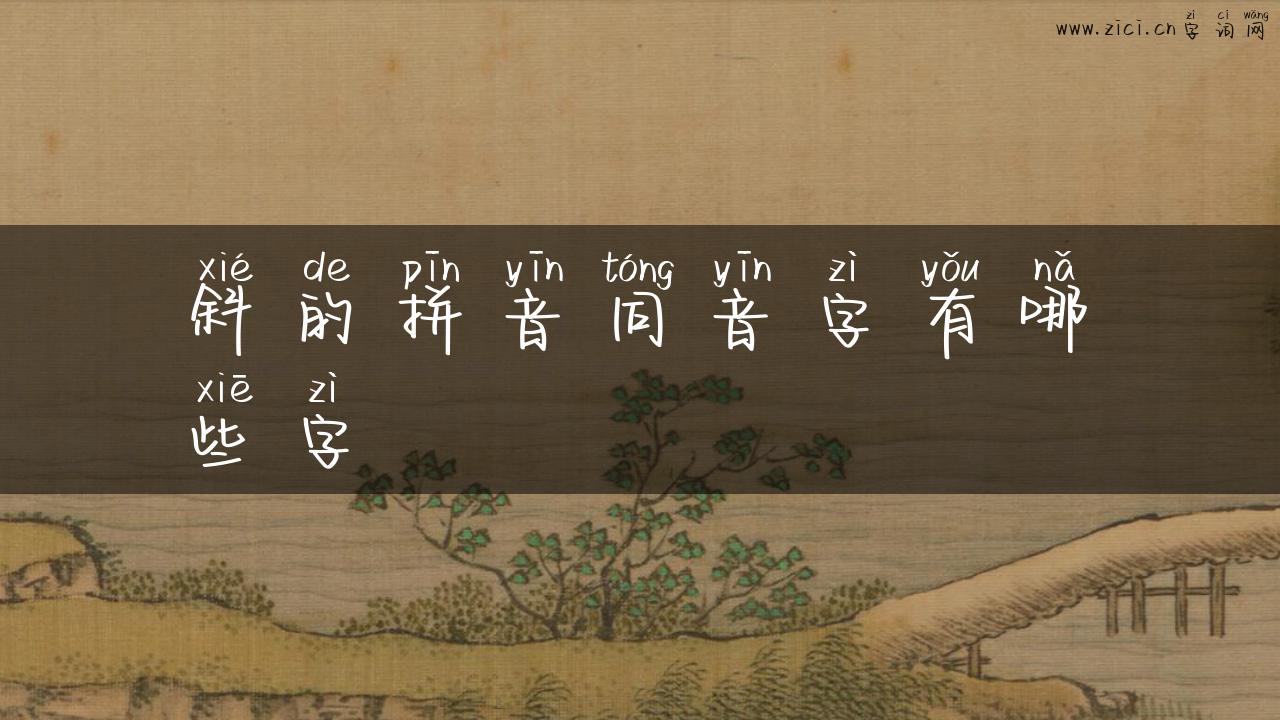 zì cí wǎng
www.zici.cn字词网
xié de pīn yīn tóng yīn zì yǒu nǎ
斜的拼音同音字有哪
xiē zì
些字